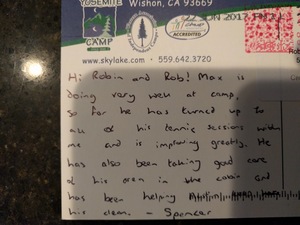 YOSEMITE
Wishon, CA 93669
CAMP
ACCREDITED
www.skylake.com • 559.642.3720
Hi Robin and Rob! Max is
doing very well at camp,
so far he has turned up to
all of his tennis sessions with
me and is improving greatly. He
has also been taking good care
of his area in the cabin and
has been helping
his clean. - Spencer